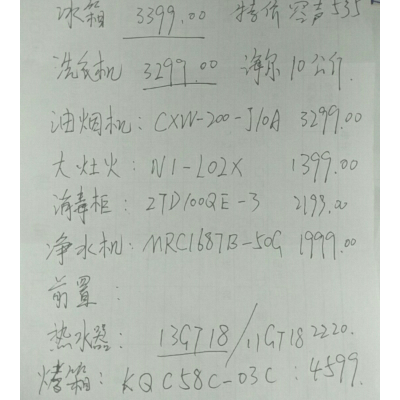 冰箱 3399.00 特价 容声535
洗衣机 3299.00 海尔10公斤.
油烟机: CXW-200-J10A 3299.00
大灶火: N1-L02X 1399.00
消毒柜: ZTD100QE-3 2199.00
净水机: MRC1687B-50G 1999.00
前置:
热水器: 13GT18/11GT18 2220.
烤箱: KQC58C-03C: 4599.